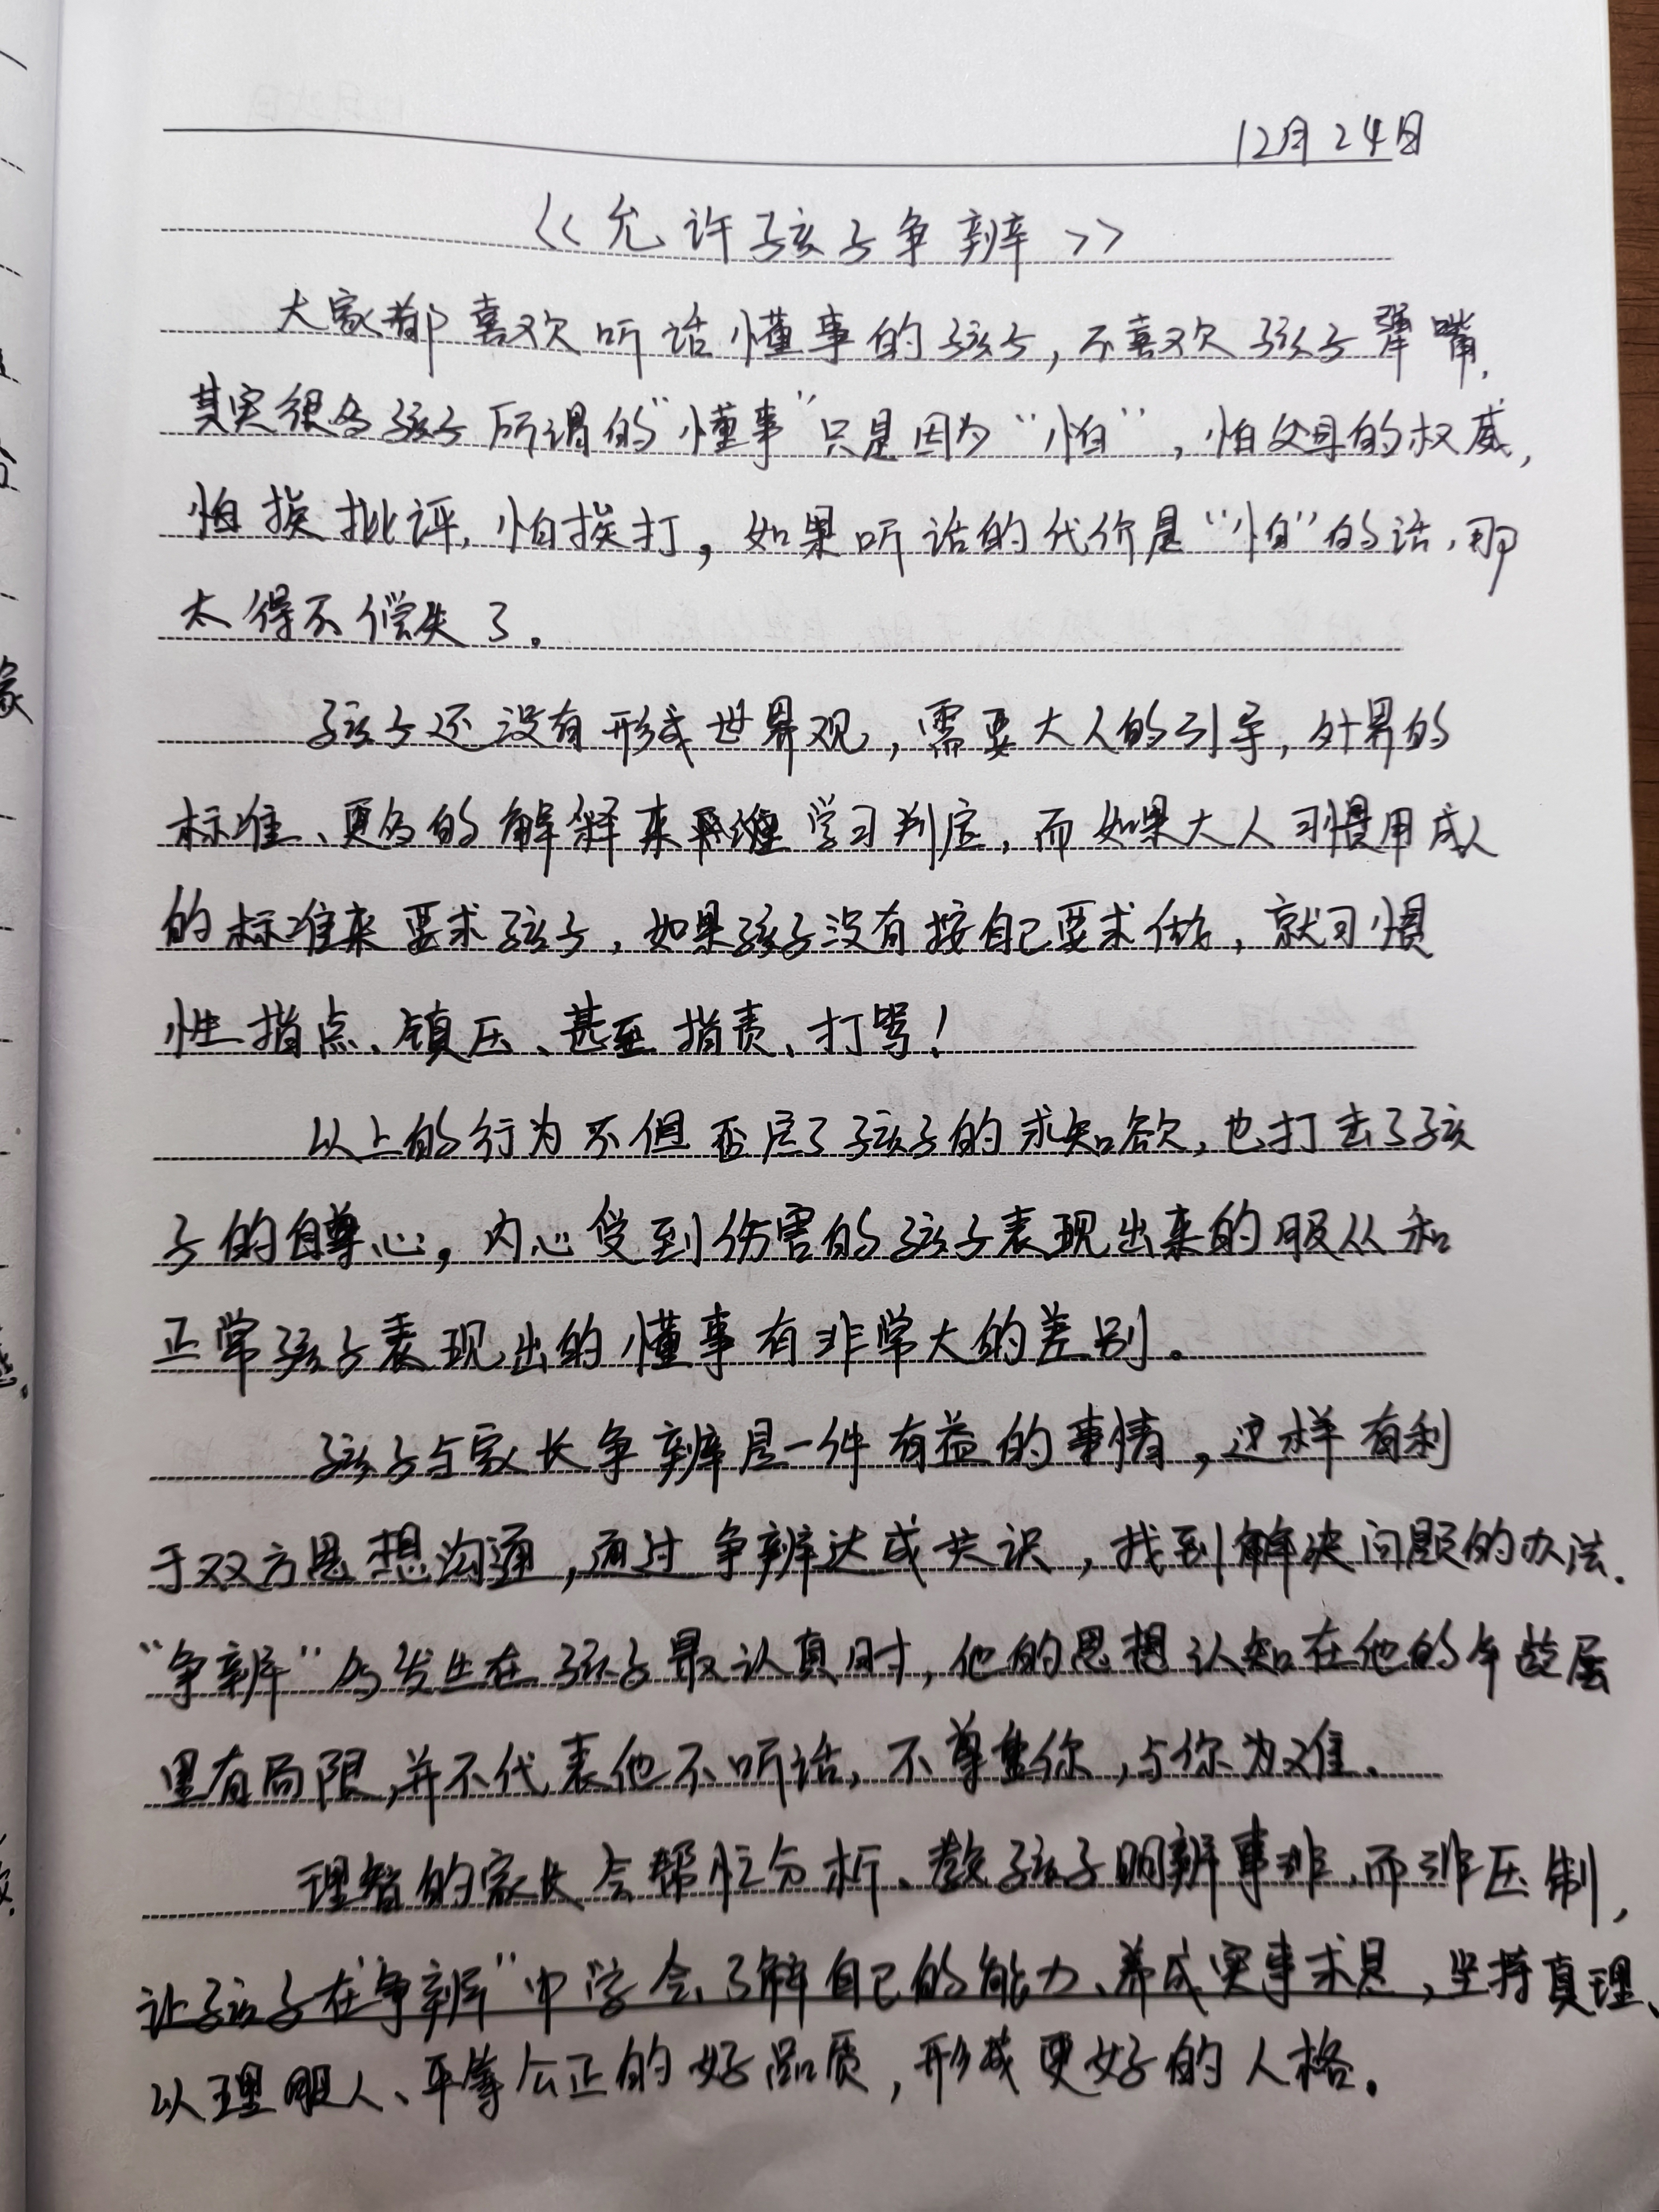 12月24日
《允许孩子争辨》
大家都喜欢听话懂事的孩子,不喜欢孩子犟嘴.
其实很多孩子所谓的“懂事”只是因为“怕”,怕父母的权威,
怕挨批评,怕挨打,如果听话的代价是“怕”的话,那
太得不偿失了。
孩子还没有形成世界观,需要大人的引导,外界的
标准、更多的解释来 学习判定,而如果大人习惯用成人
的标准来要求孩子,如果孩子没有按自己要求做,就习惯
性指点、镇压、甚至指责、打骂!
以上的行为不但否定了孩子的求知欲,也打击了孩
子的自尊心,内心受到伤害的孩子表现出来的服从和
正常孩子表现出的懂事有非常大的差别。
孩子与家长争辨是一件有益的事情,这样有利
于双方思想沟通,通过争辨达成共识,找到解决问题的办法.
“争辨”多发生在孩子最认真时,他的思想认知在他的年龄层
里有局限,并不代表他不听话,不尊重你,与你为难.
理智的家长会帮忙分析、教孩子明辨事非,而非压制,
让孩子在“争辨”中学会了解自己的能力、养成实事求是,坚持真理、
以理服人、平等公正的好品质,形成更好的人格.